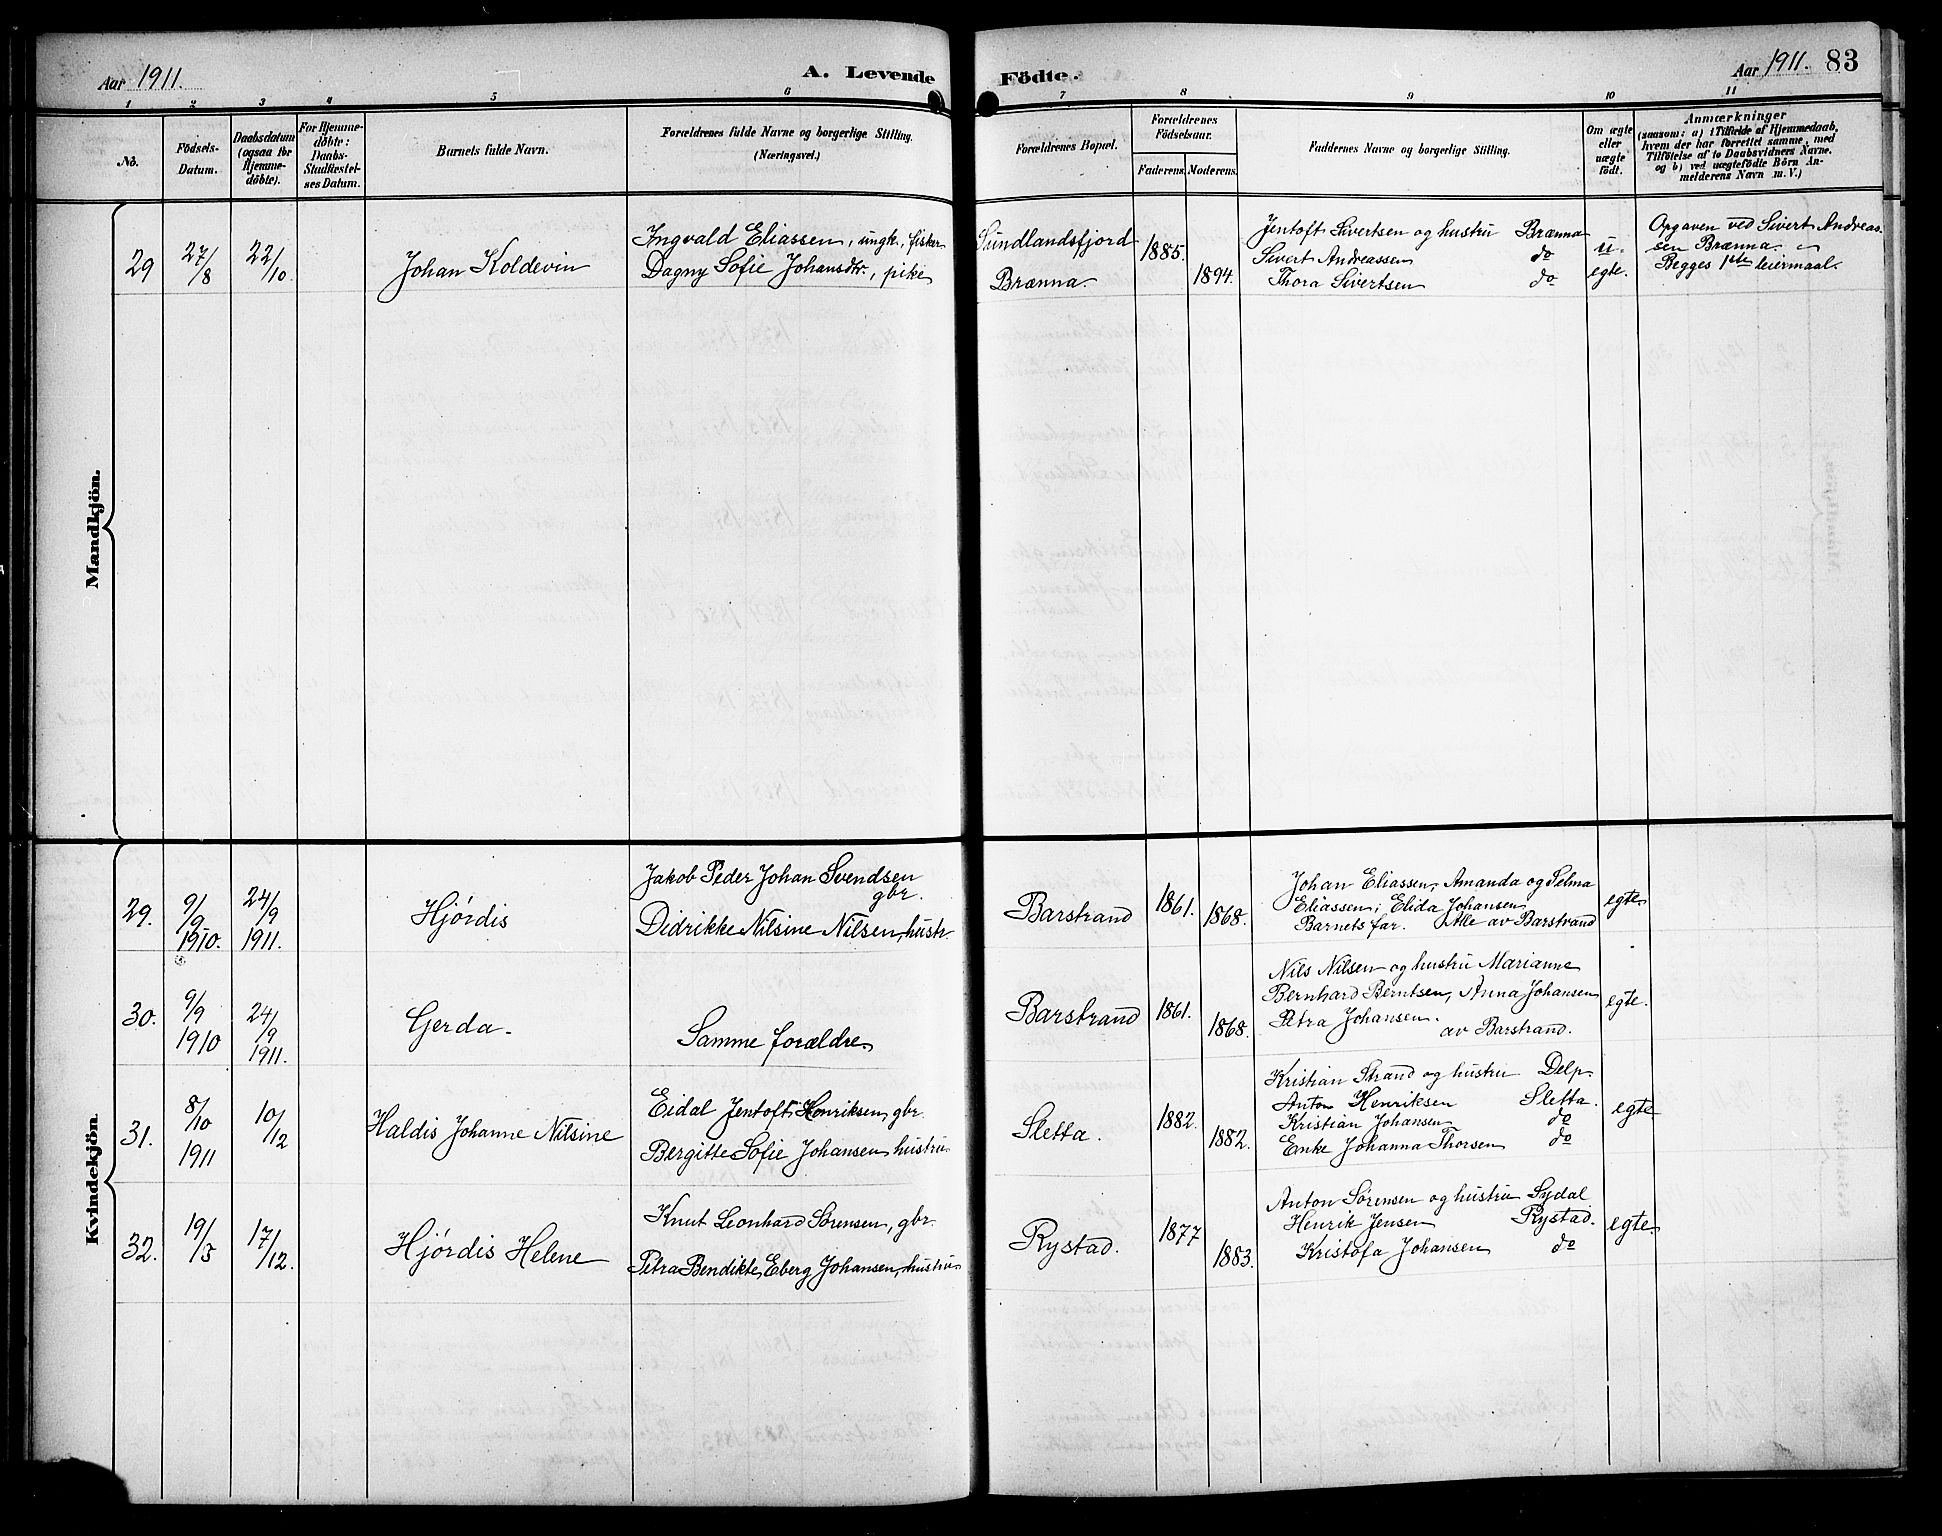 Aar 1911.
A. Levende Födte.
Aar 1911. 83
1 2 3 4 5 6 7 8 9 10 11
No.
Födsels-
Datum.
Daabsdatum
(ogsaa for
Hjemme-
döbte).
For Hjemme-
döbte:
Daabs-
Stadfæstel-
ses Datum.
Barnets fulde Navn.
Forældrenes fulde Navne og borgerlige Stilling.
(Næringsvei.)
Forældrenes Bopæl.
Forældrenes
Födselsaar.
Faderens. Moderens.
Faddernes Navne og borgerlige Stilling.
Om ægte
eller
uægte
födt.
Anmærkninger
(saasom: a) i Tilfælde af Hjemmedaab,
hvem der har forrettet samme, med
Tilföielse af to Daabsvidners Navne.
og b) ved uægtefödte Börn An-
melderens Navn m. V.)
Mandkjön.
29 27/8 22/10. Johan Koldevin
Ingvald Eliassen, ungk., fisker
Dagny Sofie Johansdtr., pike
Sundlandsfjord
Brænna.
1885. 1894.
Jentoft Sivertsen og hustru Brænna
Sivert Andreassen do
Thora Sivertsen do
u-
egte.
Opgaven ved Sivert Andreas-
sen Brænna.
Begges 1ste leiermaal.
Kvindekjön.
29. 9/9 1910. 24/9 1911. Hjørdis
Jakob Peder Johan Svendsen
gbr.
Didrikke Nilsine Nilsen, hustr.
Barstrand 1861. 1868.
Johan Eliassen, Amanda og Selma
Eliassen; Elida Johansen
Barnets far. Alle av Barstrand
egte
30. 9/9 1910 24/9 1911. Gerda.
Samme forældre.
Barstrand 1861. 1868.
Nils Nilsen og hustru Marianne
Bernhard Berntsen, Anna Johansen
Petra Johansen.
av Barstrand.
egte.
31. 8/10 1911 10/12 Haldis Johanne Nilsine
Eidal Jentoft Henriksen, gbr.
Bergitte Sofie Johansen hustru
Sletta. 1882. 1882.
Kristian Strand og hustru Delp.
Anton Henriksen Sletta.
Kristian Johansen do
Enke Johanna Thorsen do
egte
32. 19/5 17/12. Hjørdis Helene
Knut Leonhard Sørensen, gbr.
Petra Bendikte Eberg Johansen, hustru
Rystad. 1877 1883.
Anton Sørensen og hustru Sydal
Henrik Jensen Rystad.
Kristofa Johansen do
egte.